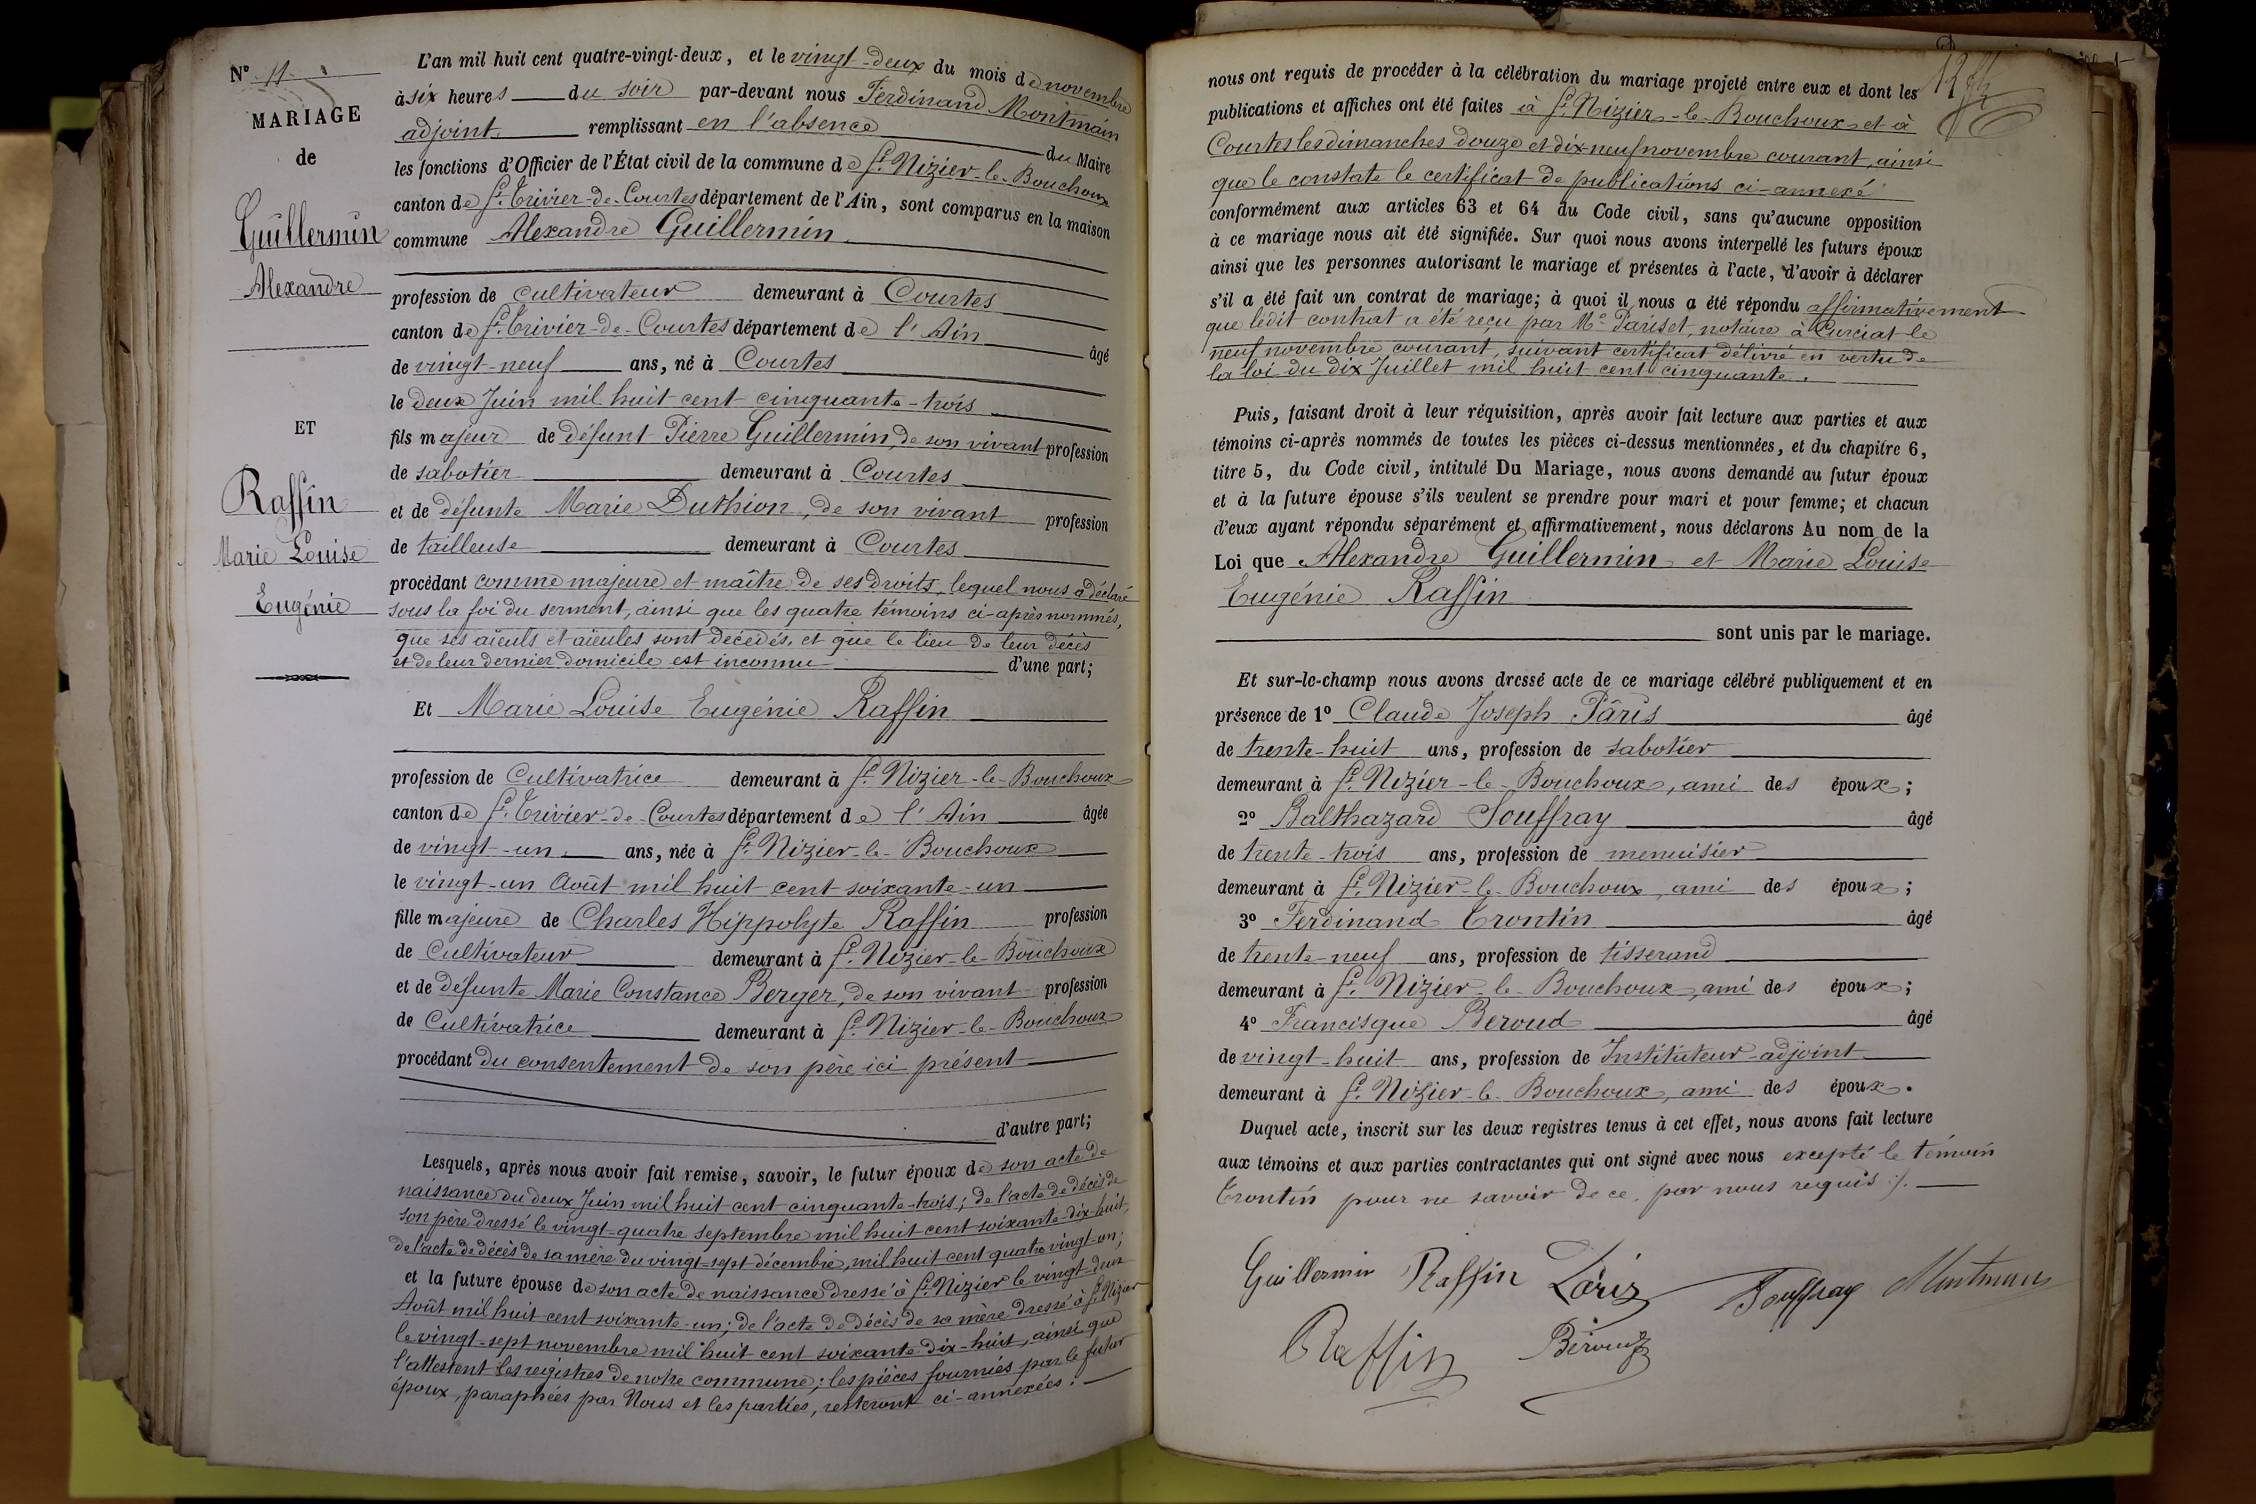 N° 11
MARIAGE
de
Guillermin
Alexandre
ET
Raffin
Marie Louise
Eugénie
L'an mil huit cent quatre-vingt-deux, et le vingt-deux du mois de novembre
à six heures du soir par-devant nous Ferdinand Montmain
adjoint remplissant en l'absence du Maire
les fonctions d'Officier de l'État civil de la commune de St. Nizier-le-Bouchoux
canton de St. Trivier-de-Courtes département de l'Ain, sont comparus en la maison
commune Alexandre Guillermin
profession de cultivateur demeurant à Courtes
canton de St. Trivier-de-Courtes département de l'Ain âgé
de vingt-neuf ans, né à Courtes
le deux Juin mil huit cent cinquante-trois
fils majeur de défunt Pierre Guillermin, de son vivant profession
de sabotier demeurant à Courtes
et de défunte Marie Duthion, de son vivant profession
de tailleuse demeurant à Courtes
procédant comme majeure et maître de ses droits, lequel nous a déclaré
sous la foi du serment, ainsi que les quatre témoins ci-après nommés,
que ses aïeuls et aïeules sont décédés, et que le lieu de leur décès
et de leur dernier domicile est inconnu d'une part;
Et Marie Louise Eugénie Raffin
profession de Cultivatrice demeurant à St. Nizier-le-Bouchoux
canton de St. Trivier-de-Courtes département de l'Ain âgée
de vingt-un ans, née à St. Nizier-le-Bouchoux
le vingt-un Août mil huit cent soixante-un
fille majeure de Charles Hippolyte Raffin profession
de Cultivateur demeurant à St. Nizier-le-Bouchoux
et de défunte Marie Constance Berger, de son vivant profession
de Cultivatrice demeurant à St. Nizier-le-Bouchoux
procédant du consentement de son père ici présent
d'autre part;
Lesquels, après nous avoir fait remise, savoir, le futur époux de son acte de
naissance du deux Juin mil huit cent cinquante-trois; de l'acte de décès de
son père dressé le vingt-quatre septembre mil huit cent soixante-dix-huit,
de l'acte de décès de sa mère du vingt-sept décembre, mil huit cent quatre vingt-un;
et la future épouse de son acte de naissance dressé à St. Nizier le vingt-deux
Août mil huit cent soixante-un; de l'acte de décès de sa mère dressé à St. Nizier
le vingt-sept novembre mil huit cent soixante-dix-huit, ainsi que
l'attestent les registres de notre commune; les pièces fournies par le futur
époux, paraphées par Nous et les parties, resteront ci-annexées.
nous ont requis de procéder à la célébration du mariage projeté entre eux et dont les
publications et affiches ont été faites à St. Nizier-le-Bouchoux et à
Courtes les dimanches douze et dix-neuf novembre courant, ainsi
que le constate le certificat de publications ci-annexé
conformément aux articles 63 et 64 du Code civil, sans qu'aucune opposition
à ce mariage nous ait été signifiée. Sur quoi nous avons interpellé les futurs époux
ainsi que les personnes autorisant le mariage et présentes à l'acte, d'avoir à déclarer
s'il a été fait un contrat de mariage; à quoi il nous a été répondu affirmativement
que ledit contrat a été reçu par Me. Pariset, notaire à Curciat le
neuf novembre courant, suivant certificat délivré en vertu de
la loi du dix Juillet mil huit cent cinquante.
Puis, faisant droit à leur réquisition, après avoir fait lecture aux parties et aux
témoins ci-après nommés de toutes les pièces ci-dessus mentionnées, et du chapitre 6,
titre 5, du Code civil, intitulé Du Mariage, nous avons demandé au futur époux
et à la future épouse s'ils veulent se prendre pour mari et pour femme; et chacun
d'eux ayant répondu séparément et affirmativement, nous déclarons Au nom de la
Loi que Alexandre Guillermin et Marie Louise
Eugénie Raffin
sont unis par le mariage.
Et sur-le-champ nous avons dressé acte de ce mariage célébré publiquement et en
présence de 1° Claude Joseph Pâris âgé
de trente-huit ans, profession de sabotier
demeurant à St. Nizier-le-Bouchoux, ami des époux;
2° Balthazard Souffray âgé
de trente-trois ans, profession de menuisier
demeurant à St. Nizier-le-Bouchoux, ami des époux;
3° Ferdinand Trontin âgé
de trente-neuf ans, profession de tisserand
demeurant à St. Nizier-le-Bouchoux, ami des époux;
4° Francisque Beroud âgé
de vingt-huit ans, profession de Instituteur-adjoint
demeurant à St. Nizier-le-Bouchoux, ami des époux.
Duquel acte, inscrit sur les deux registres tenus à cet effet, nous avons fait lecture
aux témoins et aux parties contractantes qui ont signé avec nous excepté le témoin
Trontin pour ne savoir de ce, par nous requis ./.
Guillermin Raffin Pâris Souffray Montmain
Raffin Béroud